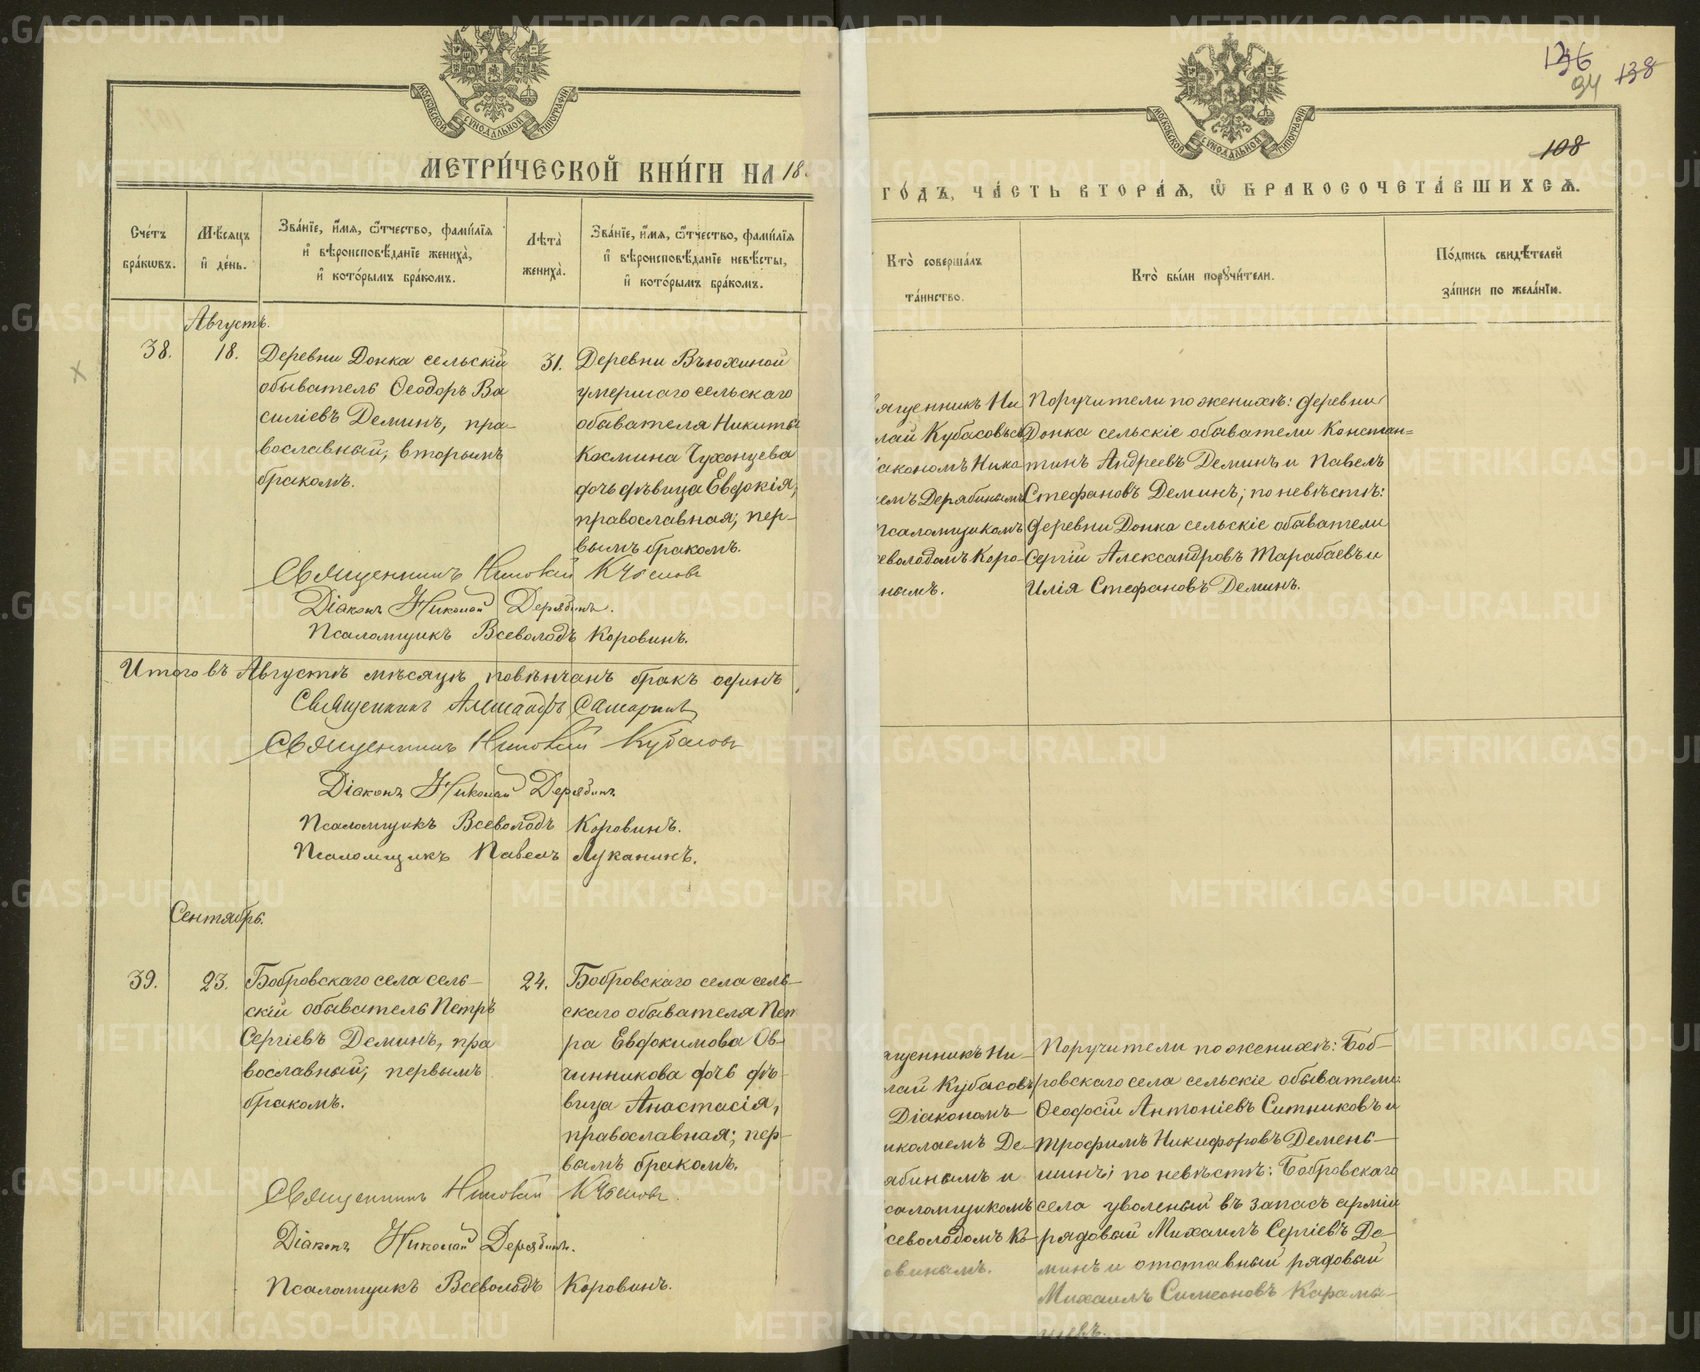 МЕТРИ́ЧЕСКОЙ КНИ́ГИ НА 18
Сче́тъ бра́кωвъ.
Мѣ́сяцъ и҆ де́нь.
Зва́нїе, и҆́мя, ѻ҆́тчество, фами́лїя и҆ вѣроисповѣ́данїе жениха̀, и҆ кото́рымъ бра́комъ.
Лѣ́та жениха̀.
Зва́нїе, и҆́мя, ѻ҆́тчество, фами́лїя и҆ вѣроисповѣ́данїе невѣ́сты, и҆ кото́рымъ бра́комъ.
Августъ.
38.
18.
Деревни Донка сельскій
обыватель Ѳеодоръ Ва
силіевъ Деминъ, пра-
вославный, вторымъ
бракомъ.
31.
Деревни Вьюхиной
умершаго сельскаго
обывателя Никиты
Косьмина Чухонцева
дочь дѣвица Евдокія,
православная; пер-
вымъ бракомъ.
Священникъ Николай Кубасовъ
Діаконъ Николай Дерябинъ.
Псаломщикъ Всеволодъ Коровинъ.
Итого въ Августѣ мѣсяцѣ повѣнчанъ бракъ одинъ
Священникъ Александръ Самаринъ
Священникъ Николай Кубасовъ
Діаконъ Николай Дерябинъ
Псаломщикъ Всеволодъ Коровинъ.
Псаломщикъ Павелъ Луканинъ.
Сентябрь.
39.
23.
Бобровскаго села сель-
скій обыватель Петръ
Сергіевъ Деминъ, пра
вославный; первымъ
бракомъ.
24.
Бобровскаго села сель-
скаго обывателя Пет
ра Евдокимова Ов-
чинникова дочь дѣ-
вица Анастасія,
православная; пер-
вымъ бракомъ.
Священникъ Николай Кубасовъ.
Діаконъ Николай Дерябинъ.
Псаломщикъ Всеволодъ Коровинъ.
136
94
138
108
ГО́ДЪ, ЧА́СТЬ ВТОРА́Ѧ, Ѽ БРАКОСОЧЕТА́ВШИХСѦ.
Кто̀ соверша́лъ та́инство.
Кто̀ бы́ли порꙋчи́тели.
По́дпись свидѣ́телей за́писи по жела́нїю.
ященникъ Ни
лай Кубасовъ съ
іакономъ Нико
емъ Дерябинымъ
псаломщикомъ
еволодомъ Коро-
нымъ.
Поручители по женихѣ: деревни
Донка сельскіе обыватели Констан=
тинъ Андреевъ Деминъ и Павелъ
Стефановъ Деминъ; по невѣстѣ:
деревни Донка сельскіе обыватели
Сергій Александровъ Тарабаевъ и
Илія Стефановъ Деминъ.
ященникъ Ни-
лай Кубасовъ
Діакономъ
иколаемъ Де-
ябинымъ и
саломщикомъ
севолодомъ Ко-
овинымъ.
Поручители по женихѣ: Боб-
ровскаго села сельскіе обыватели:
Ѳеодосій Антоніевъ Ситниковъ и
Трофимъ Никифоровъ Демень-
шинъ; по невѣстѣ: Бобровскаго
села уволеный въ запасъ арміи
рядовый Михаилъ Сергіевъ Де-
минъ и отставный рядовый
Михаилъ Симеоновъ Карамы-
шевъ.
METRIKI.GASO-URAL.RU